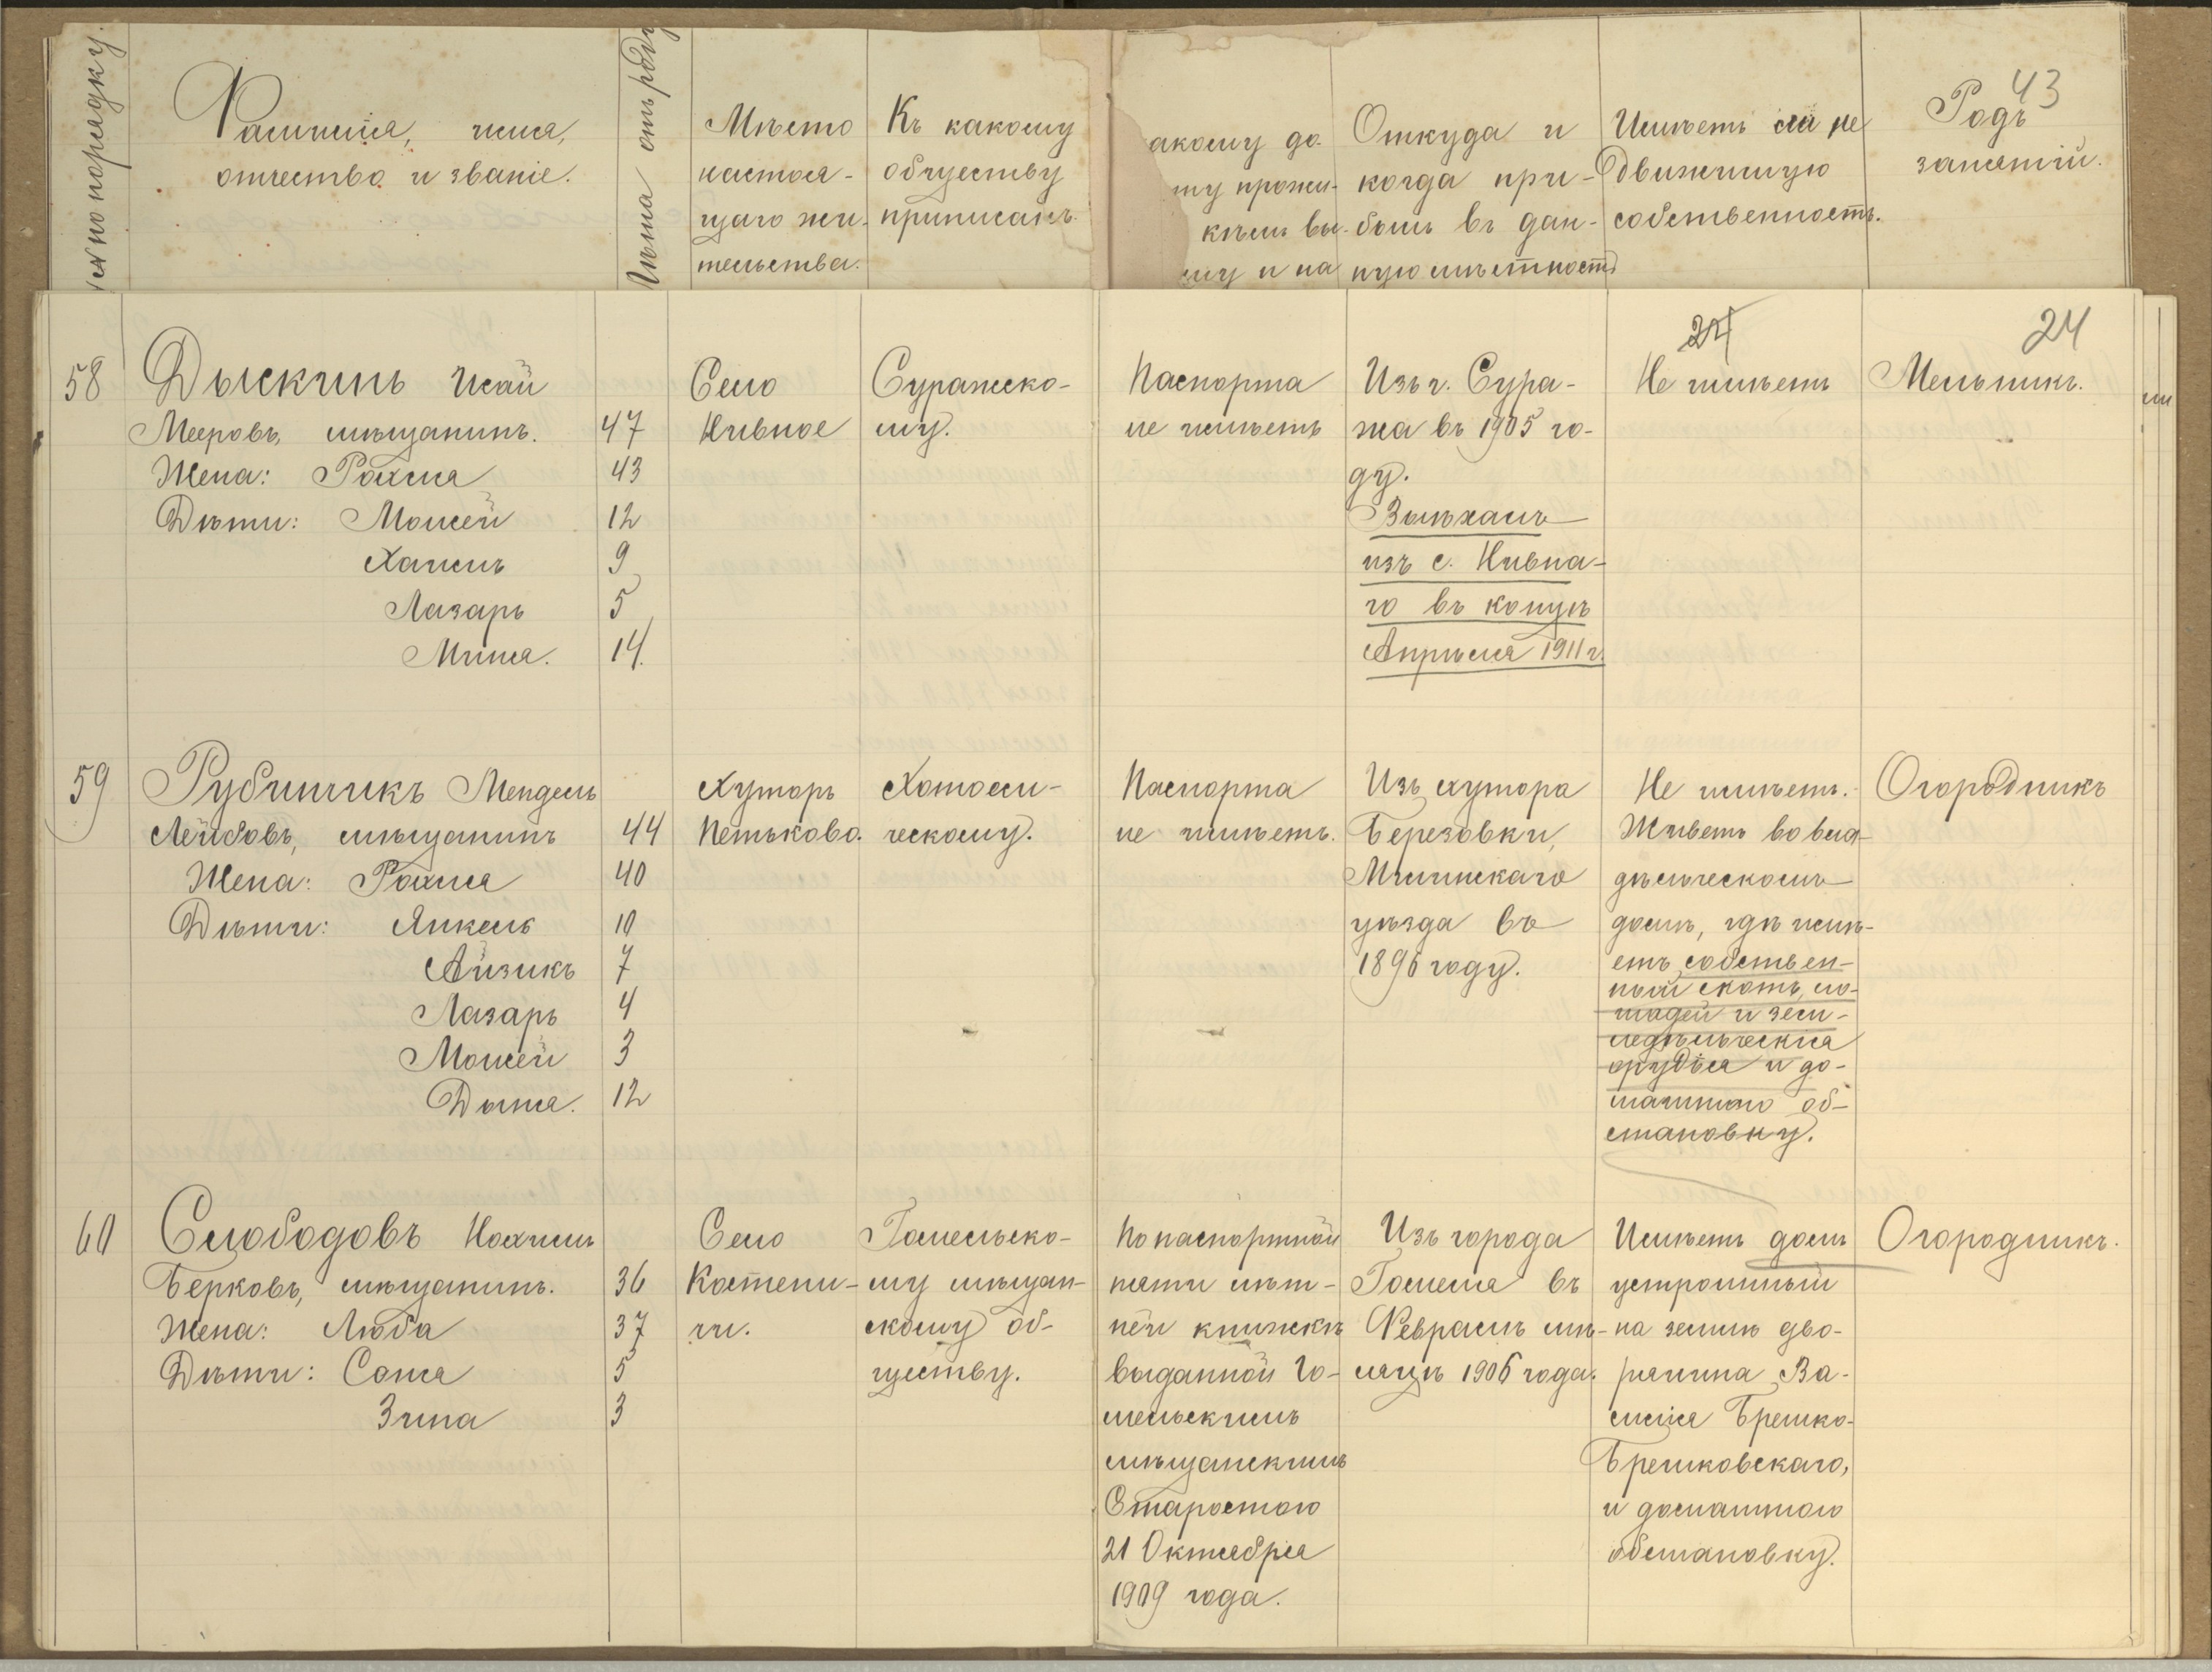 № по порядку.
Фамилія, имя,
отчество и званіе.
Лѣта отъ роду
Мѣсто
настоя-
щаго жи-
тельства.
Къ какому
обществу
приписанъ.
акому до-
ту прожи-
кѣмъ вы-
му и на
Откуда и
когда при-
былъ въ дан-
ную мѣстность
Имѣетъ ли не
движимую
собственность.
43
Родъ
занятій.
24
24
58
Дыскинъ Исай
Мееровъ, мѣщанинъ. 47
Жена: Рахиля 43
Дѣти: Мовшей 12
Хаимъ 9
Лазарь 5
Миня. 14.
Село
Нивное
Суражско-
му.
Паспорта
не имѣетъ
Изъ г. Сура-
жа въ 1905 го-
ду.
Выѣхалъ
изъ с. Нивна-
го въ концѣ
Апрѣля 1911 г.
Не имѣетъ
Мельникъ.
59
Рубинчикъ Мендель
Лейбовъ, мѣщанинъ 44
Жена: Рахиля 40
Дѣти: Янкель 10
Айзикъ 7
Лазарь 4
Мовшей 3
Дыня. 12
Хуторъ
Петьково.
Хотоси-
ческому.
Паспорта
не имѣетъ.
Изъ хутора
Березовки,
Мглинскаго
уѣзда въ
1896 году.
Не имѣетъ.
Живетъ во вла-
дѣльческомъ
домѣ, гдѣ имѣ-
етъ собствен-
ный скотъ, ло-
шадей и зем-
ледѣльческія
орудія и до-
машнюю об-
становку.
Огородникъ
60
Слободовъ Нохимъ
Берковъ, мѣщанинъ. 36
Жена: Люба 37
Дѣти: Соня 5
Зина 3
Село
Костени-
чи.
Гомельско-
му мѣщан-
скому об-
ществу.
По паспортной
пяти лѣт-
ней книжкѣ
выданной Го-
мельскимъ
мѣщанскимъ
Старостою
21 Октября
1909 года.
Изъ города
Гомеля въ
Февралѣ мѣ-
сяцѣ 1906 года.
Имѣетъ домъ
устроенный
на землѣ дво-
рянина Ва-
силія Брешко-
Брешковскаго,
и домашнюю
обстановку.
Огородникъ.